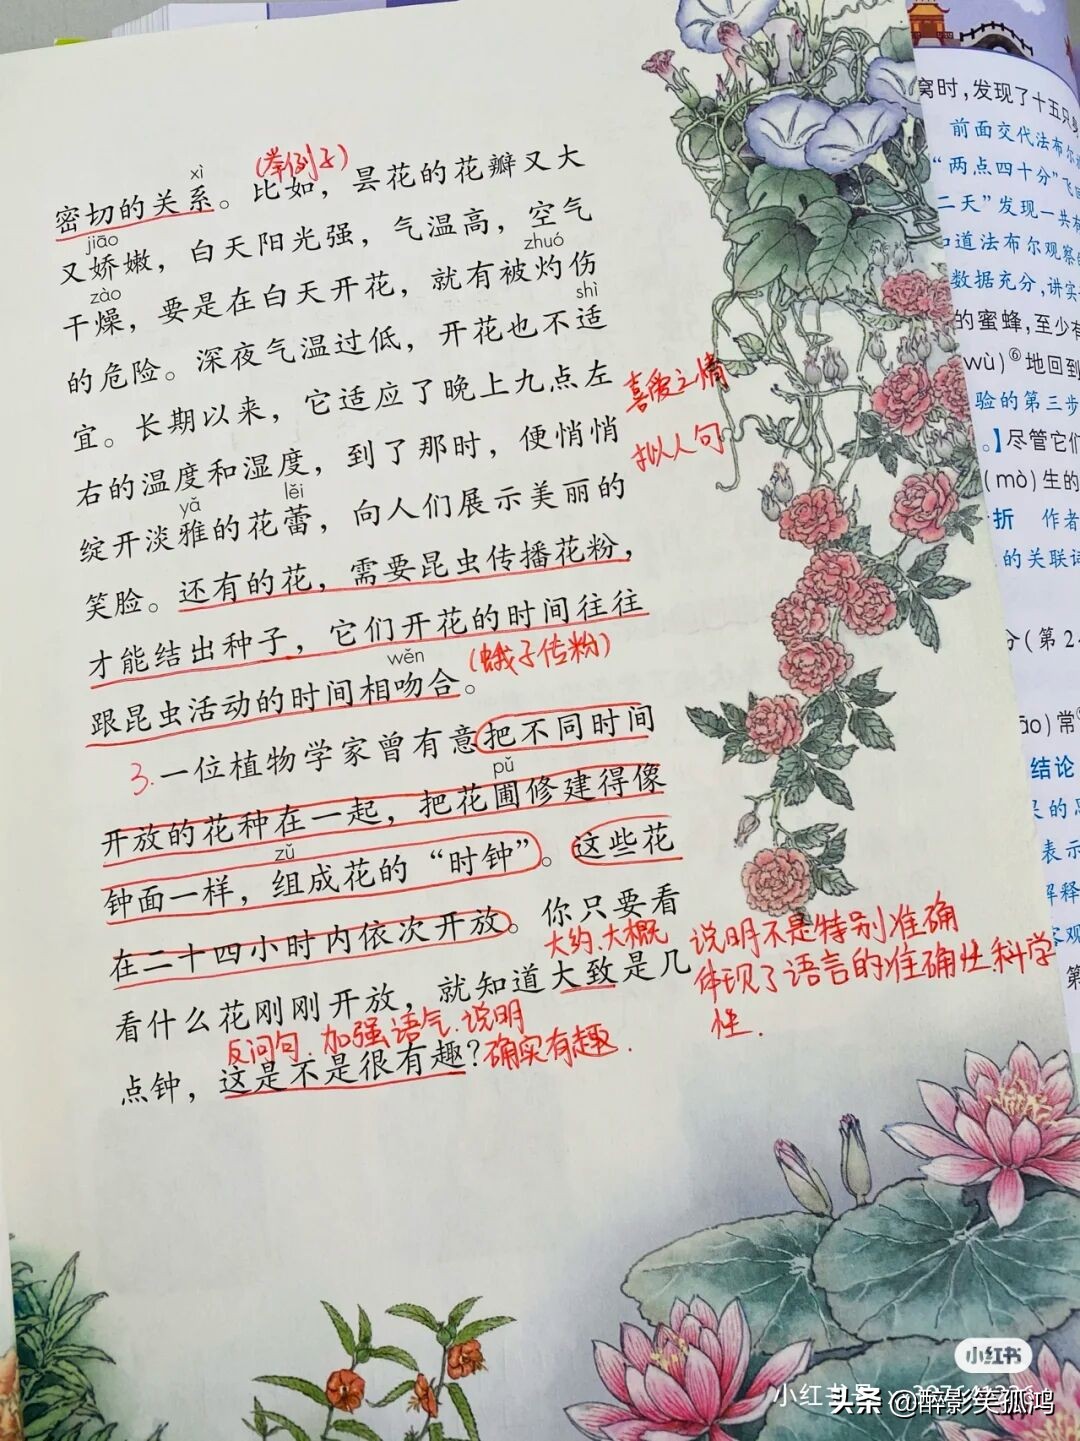 xì
(举例子)
密切的关系。比如，昙花的花瓣又大
jiāo
又娇嫩，白天阳光强，气温高，空气
zào
zhuó
干燥，要是在白天开花，就有被灼伤
shì
的危险。深夜气温过低，开花也不适
宜。长期以来，它适应了晚上九点左
喜爱之情
右的温度和湿度，到了那时，便悄悄
拟人句
yǎ
lěi
绽开淡雅的花蕾，向人们展示美丽的
笑脸。还有的花，需要昆虫传播花粉，
才能结出种子，它们开花的时间往往
wěn
(蛾子传粉)
跟昆虫活动的时间相吻合。
3.一位植物学家曾有意把不同时间
pǔ
开放的花种在一起，把花圃修建得像
zǔ
钟面一样，组成花的“时钟”。这些花
在二十四小时内依次开放。你只要看
大约、大概
看什么花刚刚开放，就知道大致是几
说明不是特别准确
体现了语言的准确性、科学
性.
反问句.加强语气.说明
确实有趣.
点钟，这是不是很有趣？
窝时，发现了十五只
前面交代法布尔
“两点四十分”飞回
二天”发现一共
知道法布尔观察
数据充分，讲实
的蜜蜂，至少有
wù)⑥地回到
验的第三步
。】尽管它们
(mò)生的
折 作者
的关联词
分(第2
āo)常
结论
表示
解释
客观
第
小红书
小红书号
头条 @醉影笑孤鸿